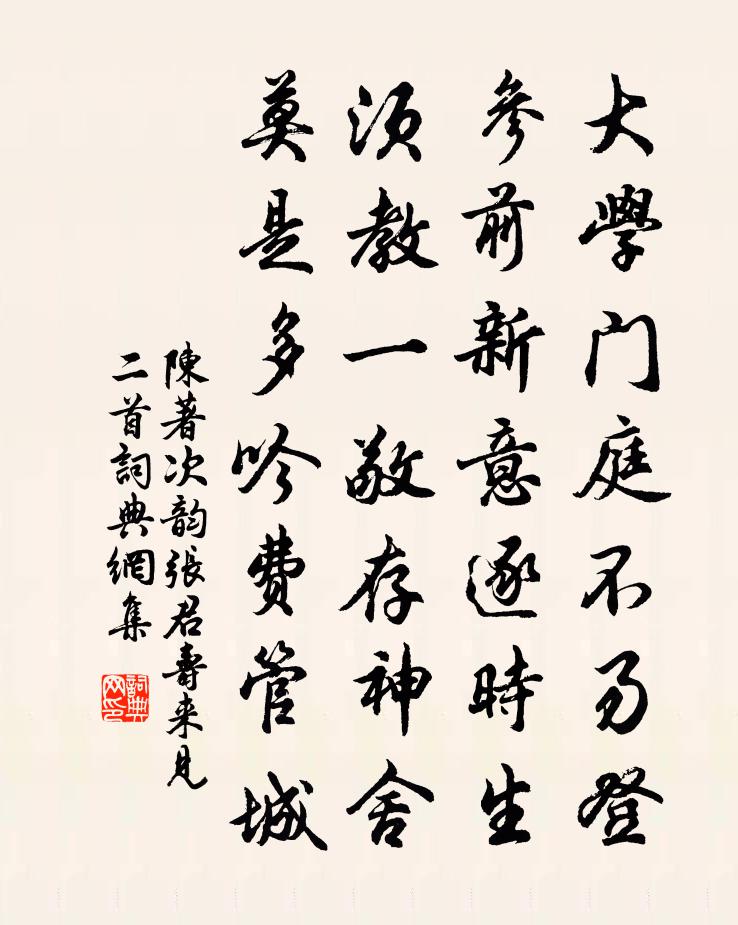 大學門庭不易登
參前新意逐時生
須教一敬存神舍
莫是多吟費管城
陳著次韵張君壽来見
二首詞典網集
詞典网印